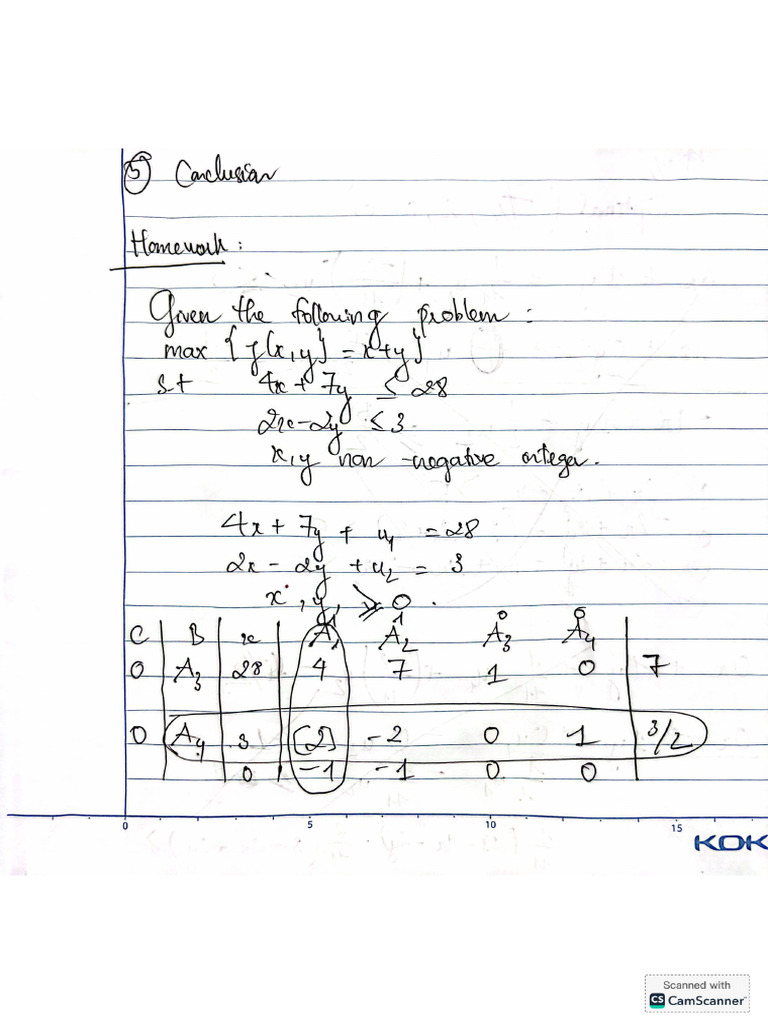 ⑤ Conclusion
Homework :
Given the following problem :
max { f(x,y) = x+y }
st 4x + 7y ≤ 28
2x - 2y ≤ 3
x,y non-negative integer.
4x + 7y + u1 = 28
2x - 2y + u2 = 3
x , y ≥ 0 .
1 1 0 0
C B x A1 A2 A3 A4
0 A3 28 4 7 1 0 7
0 A4 3 [2] -2 0 1 3/2
0 -1 -1 0 0
0 5 10 15
KOK
Scanned with
CS CamScanner